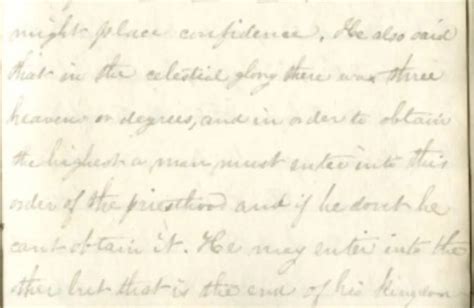 might place confidence. He also said
that in the celestial glory there was three
heavens or degrees, and in order to obtain
the highest a man must enter into this
order of the priesthood and if he dont he
cant obtain it. He may enter into the
other but that is the end of his kingdom